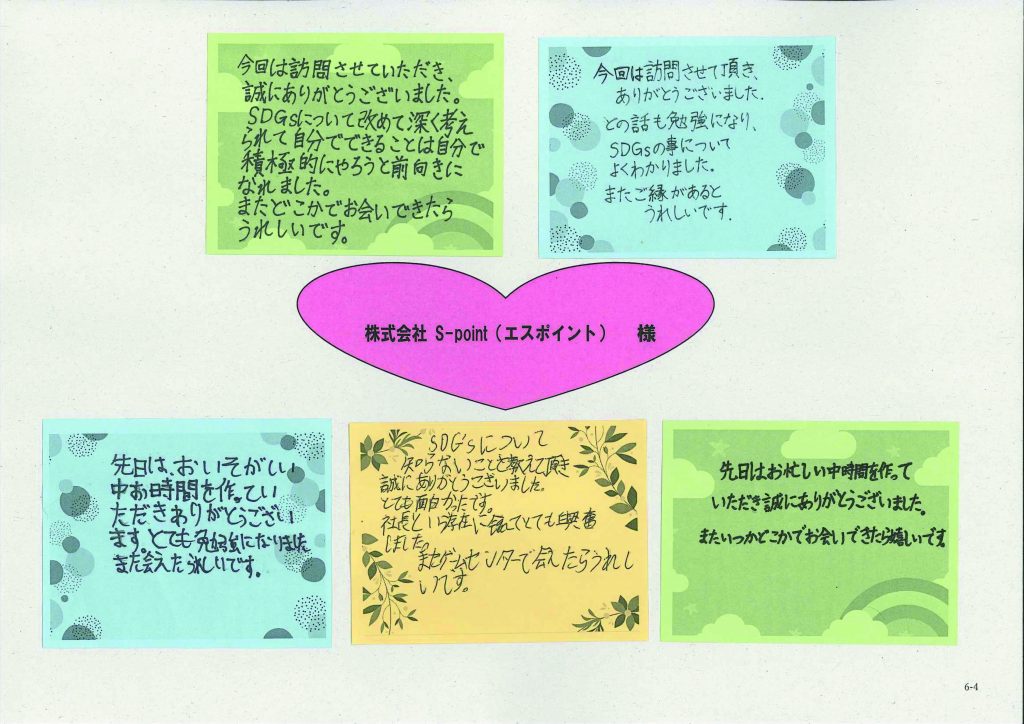 今回は訪問させていただき、
誠にありがとうございました。
SDGsについて改めて深く考え
られて自分でできることは自分で
積極的にやろうと前向きに
なれました。
またどこかでお会いできたら
うれしいです。
今回は訪問させて頂き、
ありがとうございました.
どの話も勉強になり、
SDGsの事について
よくわかりました。
またご縁があると
うれしいです.
株式会社 S-point(エスポイント) 様
先日は、おいそがしい
中お時間を作ってい
ただきありがとうござい
ます とても勉強になりました
また会えたらうれしいです。
SDG'sについて
知らないことを教えて頂き
誠にありがとうございました。
とても面白かったです。
社長という存在に会えてとても興奮
しました。
またゲームセンターで会えたらうれし
いです。
先日はお忙しい中時間を作って
いただき誠にありがとうございました。
またいつかどこかでお会いできたら嬉しいです
6-4